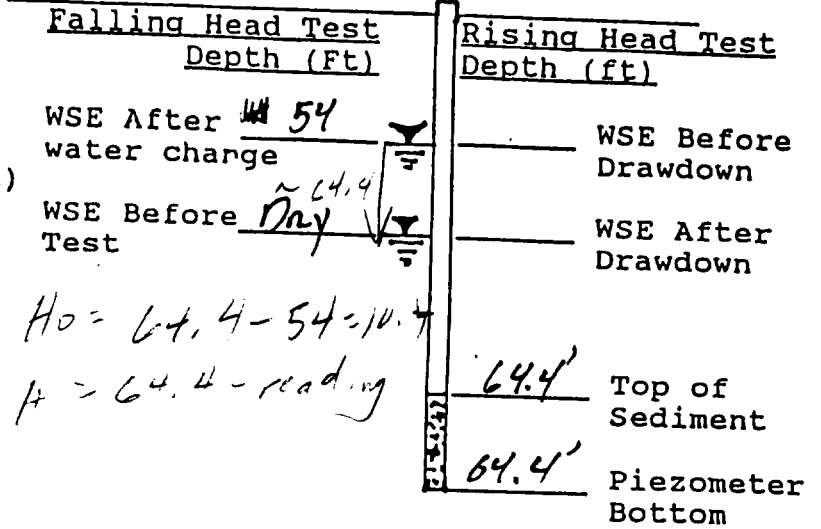 Falling Head Test
Depth (Ft)
WSE After 54
water change
)
~ 64.4
WSE Before Dry
Test
Ho = 64.4 - 54 = 10.4
H = 64.4 - reading
Rising Head Test
Depth (ft)
WSE Before
Drawdown
WSE After
Drawdown
64.4' Top of
Sediment
64.4' Piezometer
Bottom